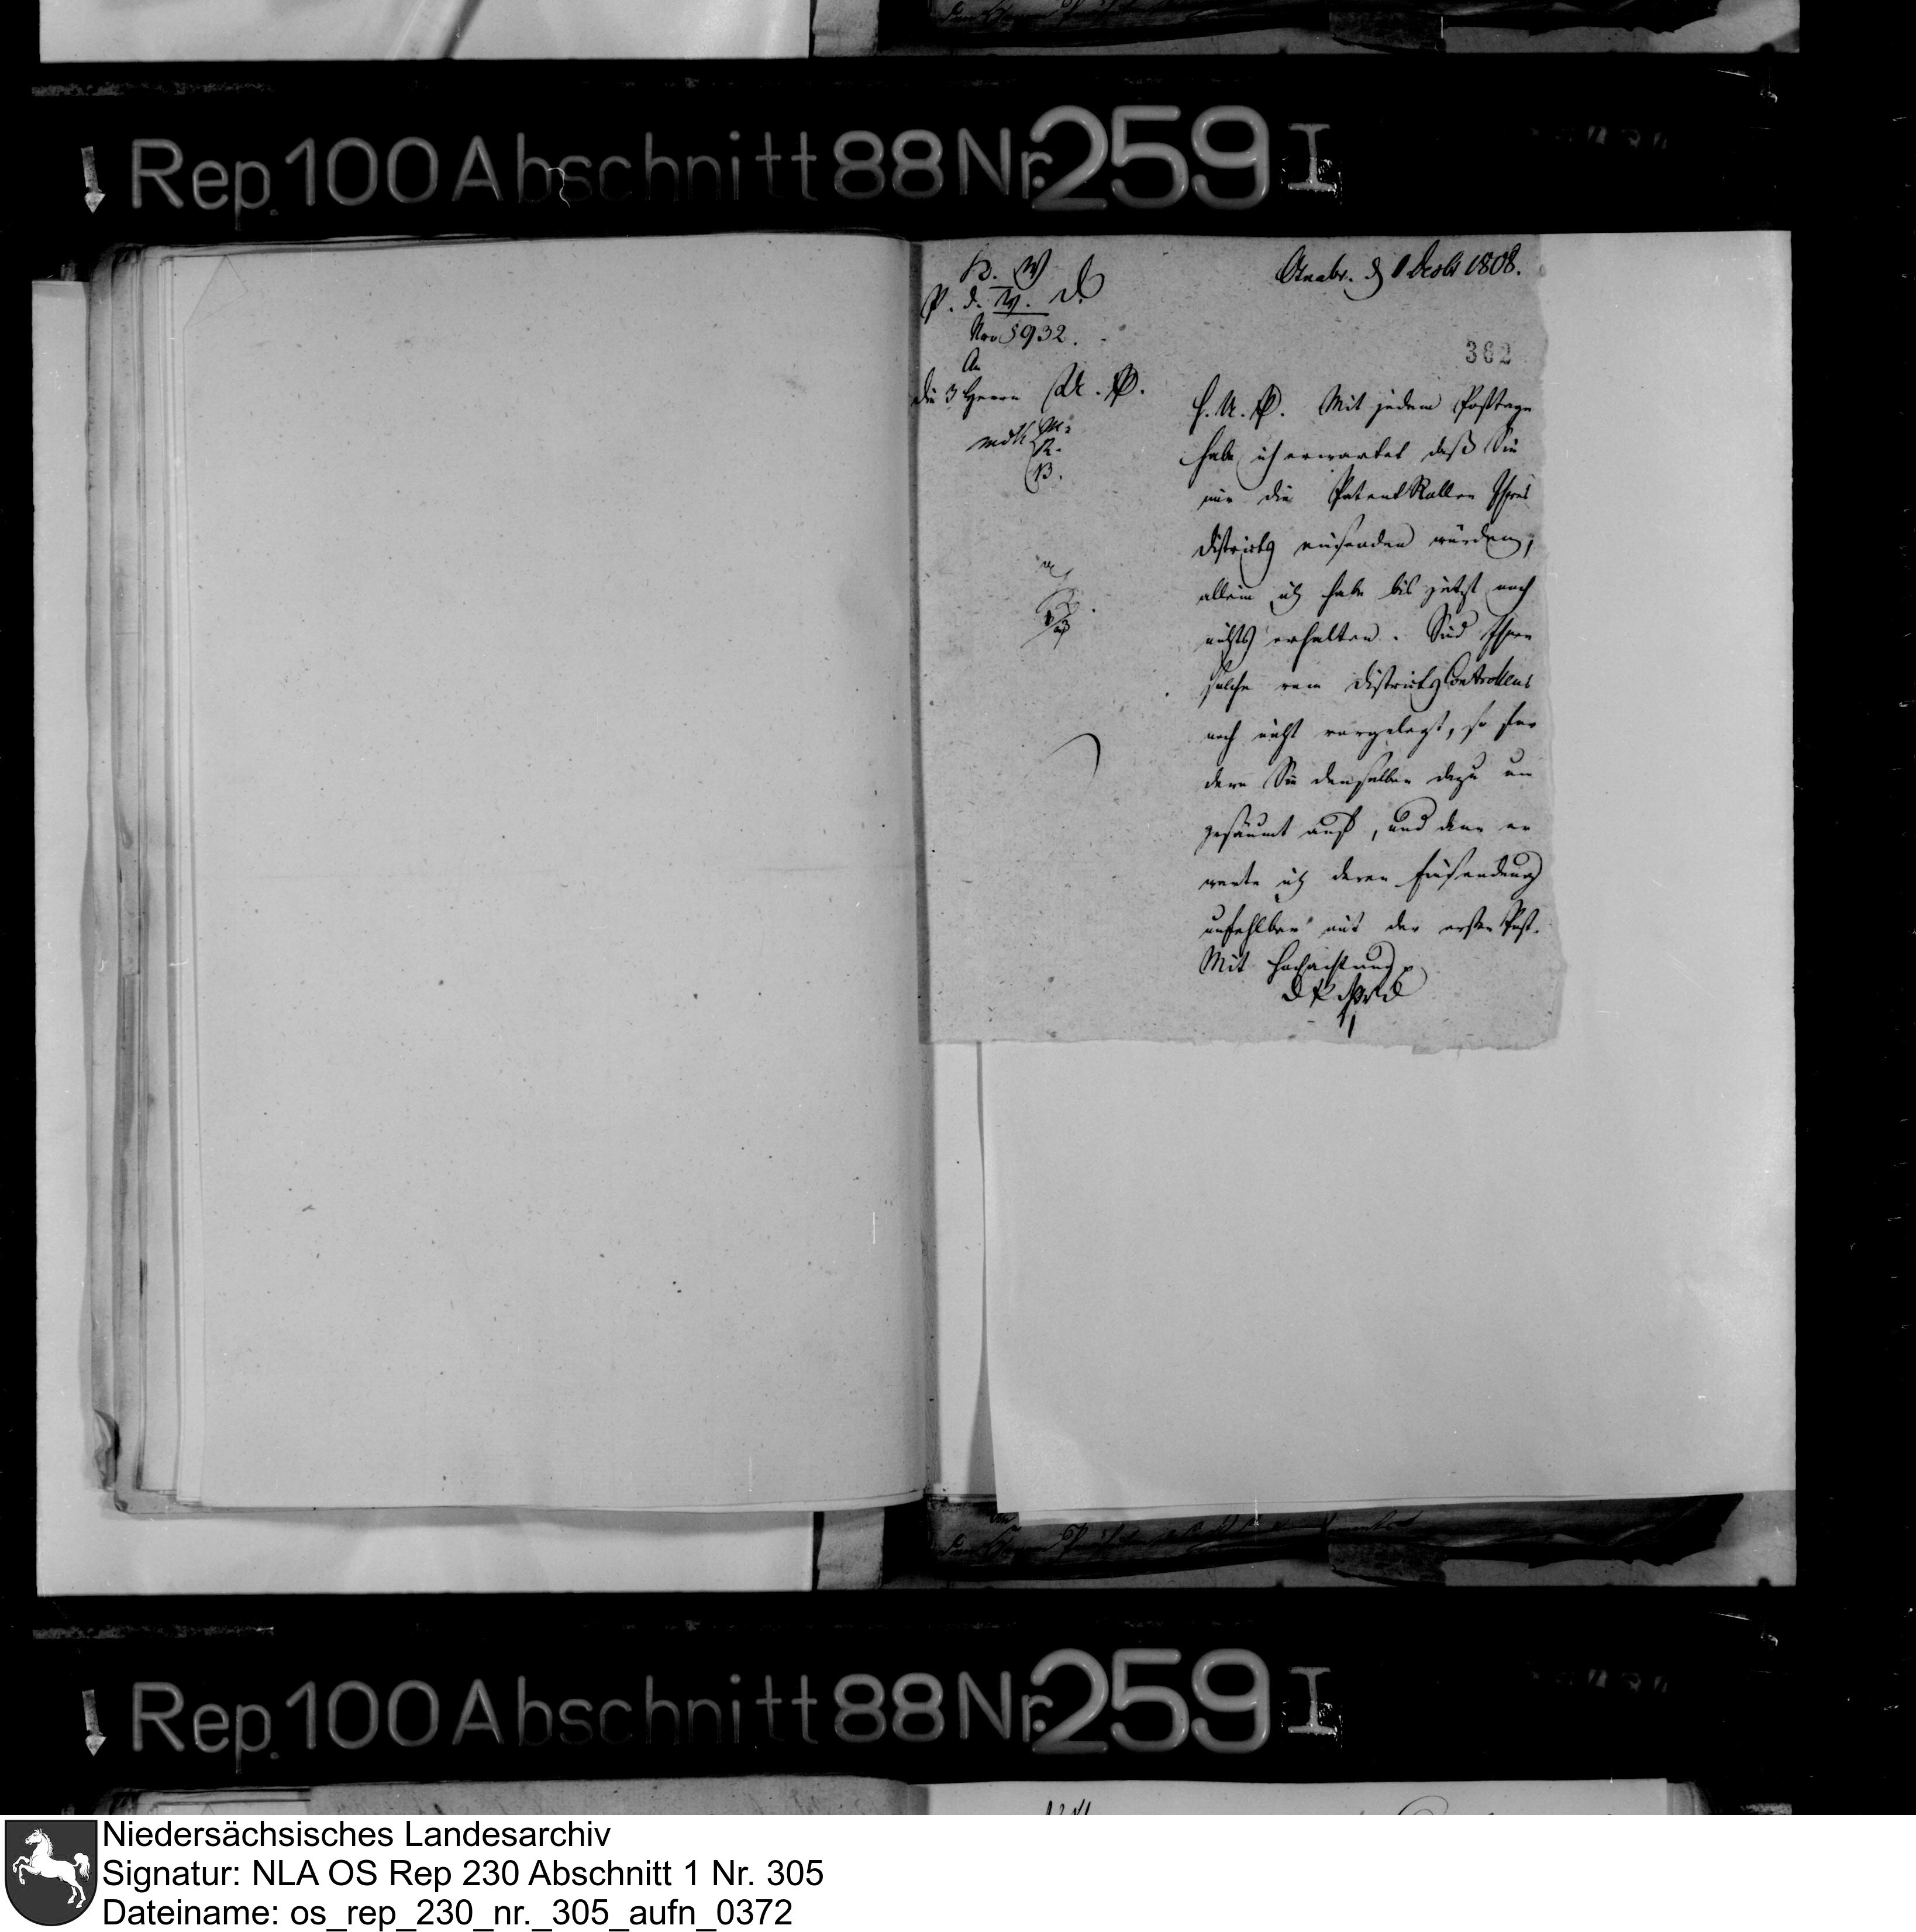 Rep. 100 Abschnitt 88 Nr. 259 I
K. W
P. d. W. D
Nro 5932.
An
die 3 Herrn U. P.
M.
R.
B.
Osnabr. d 1 Decbr 1808.
362
H. U. P. Mit jedem Posttage
habe ich erwartet daß Sie
mir die Patent Rollen Ihres
Districts einsenden würden,
allein ich habe bis jetzt noch
nichts erhalten. Sind Ihnen
solche vom Districts Controlleur
noch nicht vorgelegt, so for
dern Sie denselben dazu un
gesäumt auf, und dann er
warte ich deren Einsendung
unfehlbar mit der ersten Post.
Mit Hochachtung
Rep. 100 Abschnitt 88 Nr. 259 I
Niedersächsisches Landesarchiv
Signatur: NLA OS Rep 230 Abschnitt 1 Nr. 305
Dateiname: os_rep_230_nr._305_aufn_0372